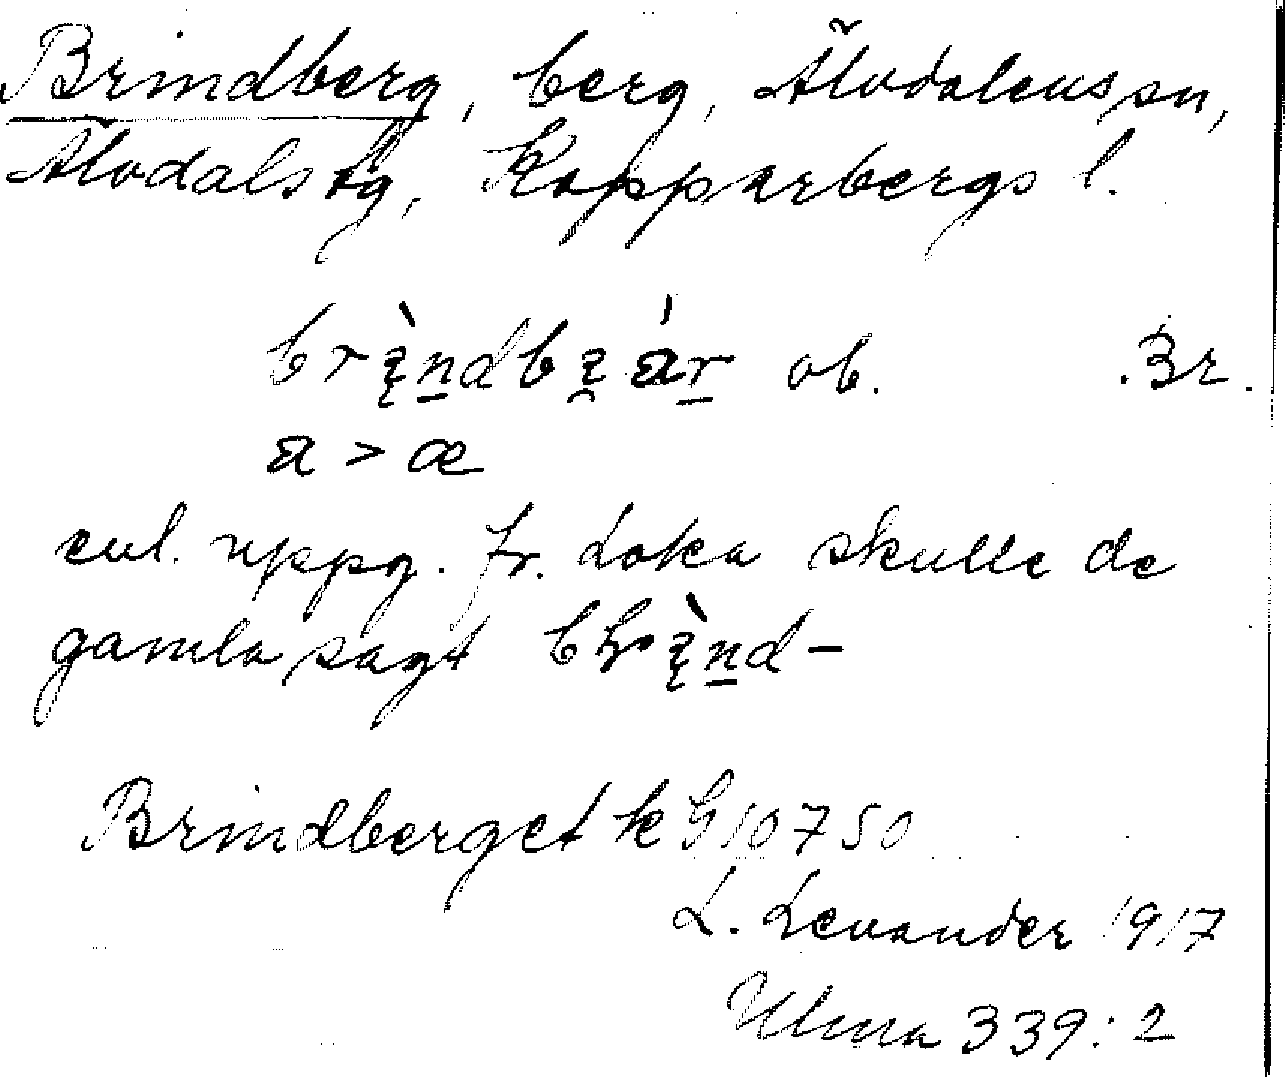 Brindberg, berg, Älvdalens sn,
Älvdals tg, Kopparbergs l.
ob. Br.
a > æ
enl. uppg. fr. Loka skulle de
gamla sagt
Brindberget k G 10750
L. Levander 1917
Ulma 339:2